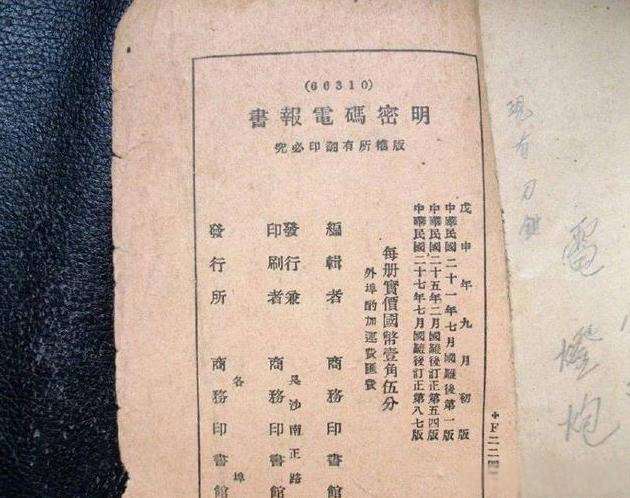 (66310)
明密碼電報書
版權所有翻印必究
戊申年九月初版
中華民國二十一年七月國難後第一版
中華民國二十五年二月國難後訂正第五四版
中華民國二十七年七月國難後訂正第八七版
每册實價國幣壹角伍分
外埠酌加運費匯費
編輯者 商務印書館
發行兼印刷者 長沙南正路 商務印書館
發行所 各埠 商務印書館
現有刀
電燈炮